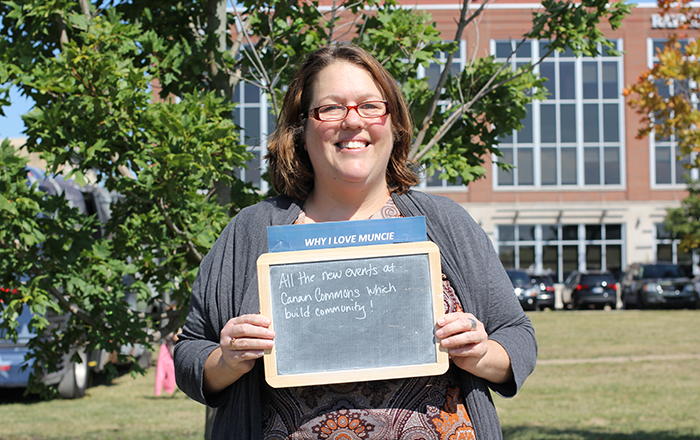 WHY I LOVE MUNCIE
All the new events at
Canan Commons which
build community!